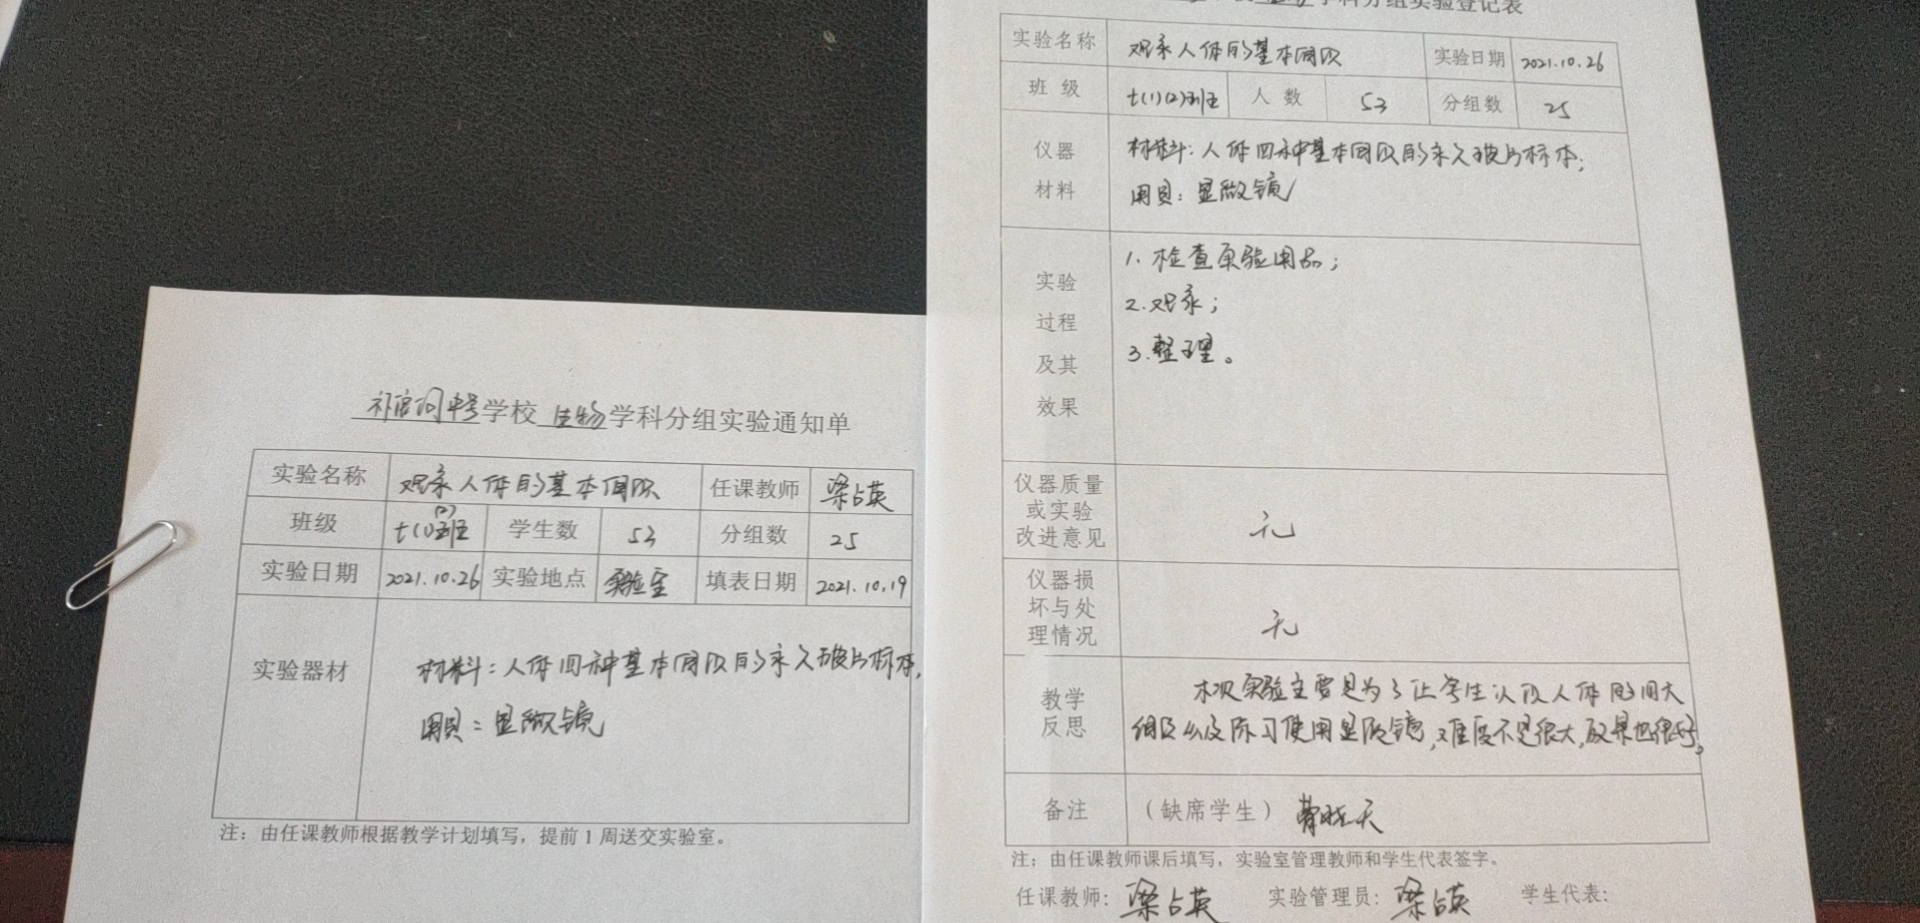 学校 生物 学科分组实验通知单
实验名称 观察人体的基本组织 任课教师 梁占英
班级 七(1)(2)班 学生数 53 分组数 25
实验日期 2021.10.26 实验地点 实验室 填表日期 2021.10.19
实验器材
材料：人体四种基本组织的永久玻片标本，
用具：显微镜
注：由任课教师根据教学计划填写，提前1周送交实验室。
学科分组实验登记表
实验名称 观察人体的基本组织 实验日期 2021.10.26
班 级 七(1)(2)班 人 数 53 分组数 25
仪器 材料：人体四种基本组织的永久玻片标本；
材料 用具：显微镜
1. 检查实验用品；
实验
2. 观察；
过程
3. 整理。
及其
效果
仪器质量
或实验 无
改进意见
仪器损
坏与处 无
理情况
教学 本次实验主要是为了让学生认识人体的四大
反思 组织以及练习使用显微镜，难度不是很大，效果也很好。
备注 （缺席学生） 天
注：由任课教师课后填写，实验室管理教师和学生代表签字。
任课教师：梁占英 实验管理员：梁占英 学生代表：